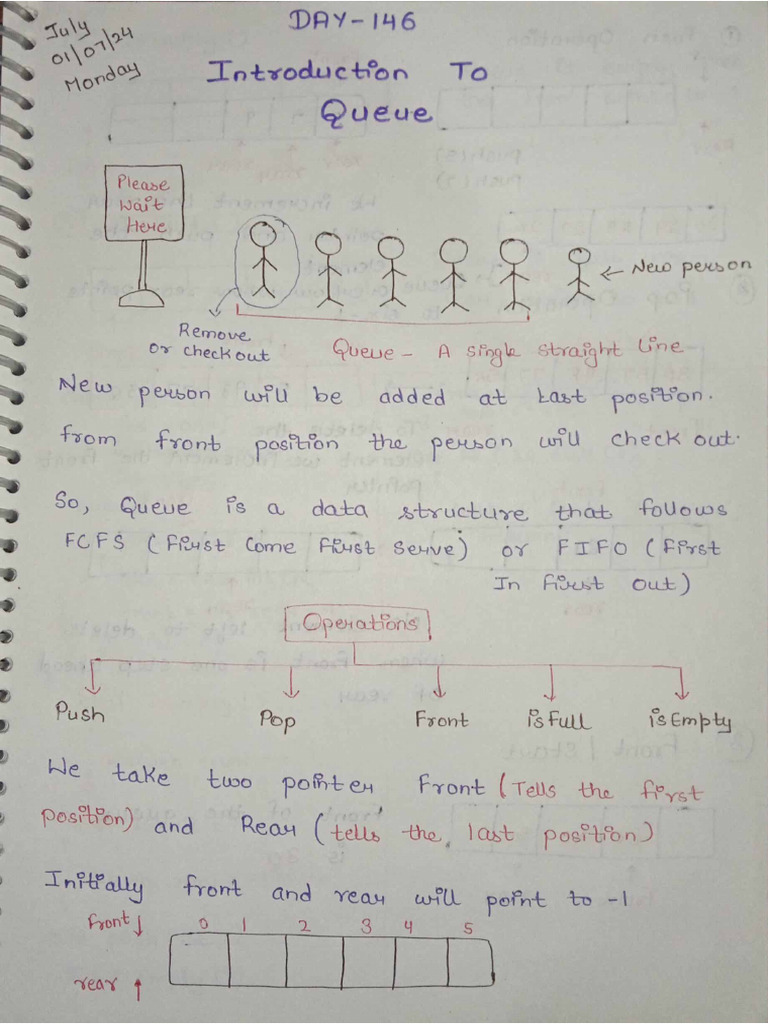 July
01/07/24
Monday
DAY-146
Introduction To
Queue
Please
Wait
Here
← New person
Remove
or check out
Queue - A single straight line
New person will be added at last position.
from front position the person will check out.
So, Queue is a data structure that follows
FCFS (First Come First Serve) or FIFO (First
In First Out)
Operations
Push Pop Front isFull isEmpty
We take two pointer Front (Tells the first
position) and Rear (tells the last position)
Initially front and rear will point to -1
front ↓ 0 1 2 3 4 5
rear ↑